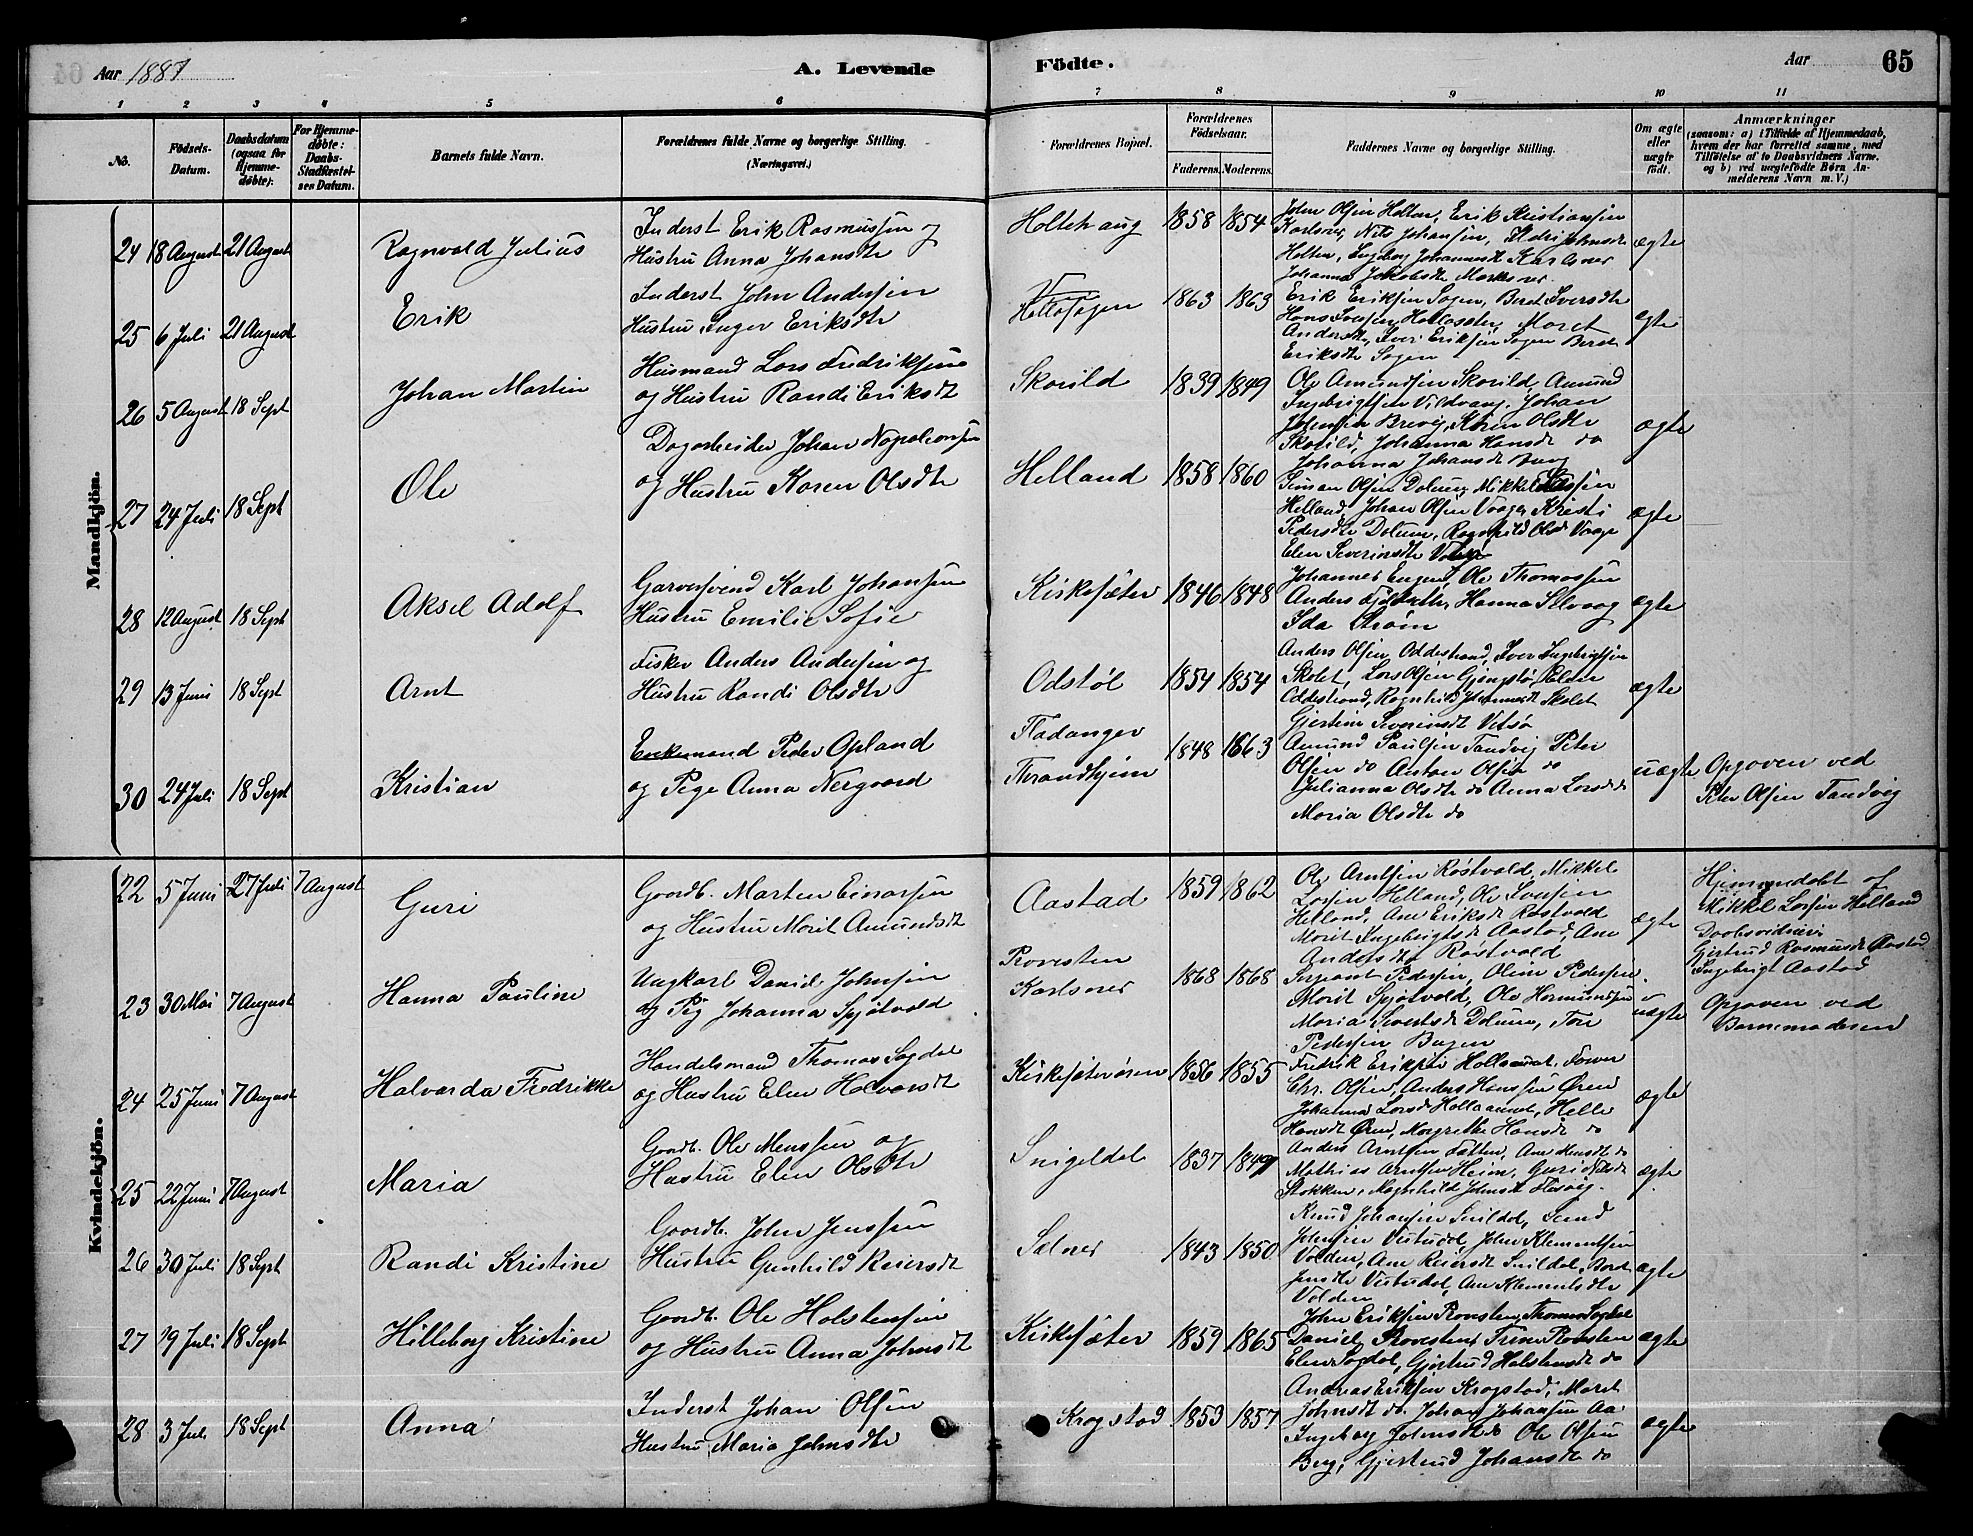 Aar 1887 A. Levende Födte. Aar 65
1 2 3 4 5 6 7 8 9 10 11
No. Födsels-Datum. Daabsdatum (ogsaa for Hjemmedöbte). For Hjemmedøbte: Daabs-Stadfæstelses Datum. Barnets fulde Navn. Forældrenes fulde Navne og borgerlige Stilling. (Næringsvei.) Forældrenes Bopæl. Forældrenes Födselsaar. Faderens. Moderens. Faddernes Navne og borgerlige Stilling. Om ægte eller uægte født. Anmærkninger (saasom: a) i Tilfælde af Hjemmedaab, hvem der har forrettet samme, med Tilföielse af to Daabsvidners Navne, og b) ved uægtefödte Börn Anmelderens Navn m. V.)
Mandkjön.
24 18 August 21 August Ragnvald Julius
Inderst Erik Rasmussen og
Hustru Anna Johansdtr
Holtehaug 1858 1854
John Olsen Holten, Erik Kristiansen
Karlsnes, Nils Johansen,
Holten, Ingebor Johannesdt Karlsnes
ægte
25 6 Juli 21 August Erik
Inderst John Andersen
Hustru Inger Eriksdtr
1863 1863
Erik Eriksen Sagen, Beret Iversdtr
Marit
Andersdtr, Iver Eriksen Sagen Beret
Eriksdtr Sagen
ægte
26 5 August 18 Sept Johan Martin
Husmand Lars Fredriksen
og Hustru Randi Eriksdt
Skorild 1839 1849
Ole Amundsen Skorild, Amund
Ingebrigtsen Vildvang, Johan
Johansen Brevig, Karen Olsdtr
Skorild, Johanna Hansdt do
Johanna Johansdt Berg
ægte
27 24 Juli 18 Sept Ole
Dagarbeider Johan Napoleonsen
og Hustru Karen Olsdtr
Helland 1858 1860
Simon Olsen Dolum, Mikkel Larsen
Helland, Johan Olsen Vaage, Kristi
Pedersdtr Dolum, Ragnhild Olsdt Vaage
Elen Severinsdtr
ægte
28 12 August 18 Sept Aksel Adolf
Garversvend Karl Johansen
Hustru Emilie Sofie
Kirksæter 1846 1848
Johannes Ole Thomassen
Anders Hanna Selvaag
Ida Strøm
ægte
29 13 Juni 18 Sept Arnt
Fisker Anders Andersen og
Hustru Randi Olsdtr
Odstøl 1854 1854
Anders Olsen Oddestrand, Iver Ingebrigtsen
Skolet, Lars Olsen
Oddestrand, Ragnhild Johannesdt Skolet
Gjertine Severinsdt Vitsø
ægte
30 24 Juli 18 Sept Kristian
Enkemand Peder Opland
og Pige Anna Nergaard
Fladanger
Thrandhjem
1848 1863
Amund Paulsen Tandvig Peter
Olsen do Anton Olsen do
Julianna Olsdtr do Anna Larsdt do
Maria Olsdtr do
uægte
Opgaven ved
Peter Olsen Tandvig
Kvindekjön.
22 5 Juni 27 Juli 7 August Guri
Gaardb. Marten Einarsen
og Hustru Marit Amundsdt
Aastad 1859 1862
Ole Arntsen Røstvold, Mikkel
Larsen Helland, Ole Iversen
Helland, Ane Eriksdt Røstvold
Marit Ingebrigtsdt Aastad, Ane
Andersdtr Røstvold
ægte
Hjemmedøbt af
Mikkel Larsen Helland
Daabsvidner:
Gjertrud Rasmusdt Aastad
Ingebrigt Aastad
23 30 Mai 7 August Hanna Pauline
Ungkarl Daniel Johnsen
og Pig Johanna Sjøtvold
Provesten
Karlsnes
1868 1868
Sergeant Pedersen, Oline Pedersen
Marit Sjøtvold, Ole Hermundsen
Maria Sivertsdt Dolum, Tore
Pedersen Bugen
uægte
Opgaven ved
Barnemoderen
24 25 Juni 7 August Halvarda Fredrikke
Handelsmand Thomas Sogdal
og Hustru Elen Halvorsdt
Kirksæterøren 1856 1855
Fredrik Eriksen Hollaunet, Farver
Chr. Olsen, Anders Hansen Øren
Johanna Larsdt Hollaunet, Helle
Hansdt Øren, Margrethe Hansdt do
ægte
25 22 Juni 7 August Maria
Gaardb. Ole Monssen og
Hustru Elen Olsdtr
Snigeldal 1837 1849
Anders Arntsen Fætten, Ane Hansdt do
Mathias Arntsen Heim, Guri Nilsdt
Stokken, Ragnhild Johnsdt
ægte
26 30 Juli 18 Sept Randi Kristine
Gaardb. John Jenssen
Hustru Gunhild Reiersdt
Sølnes 1843 1850
Knud Johansen Snildal,
Johnsen Vistdal, John Klementsen
Volden, Ane Reiersdt Snildal, Beret
Jensdtr Vistdal, Ane Klementsdtr
Volden
ægte
27 19 Juli 18 Sept Hilleborg Kristine
Gaardb. Ole Holstensen
og Hustru Anna Johnsdt
Kirkesæter 1859 1865
John Eriksen Prousten, Thomas Sogdal
Daniel Provesten, Trine Provsten
Elen Sogdal, Gjertrud Holstensdt do
ægte
28 3 Juli 18 Sept Anna
Inderst Johan Olsen
Hustru Maria Johnsdtr
Krogstad 1853 1857
Andreas Eriksen Krogstad, Marit
Johnsdt do, Johan Johansen Aa
Ingeborg Johnsdt do Ole Olsen
Berg, Gjertrud Johansdt do
ægte